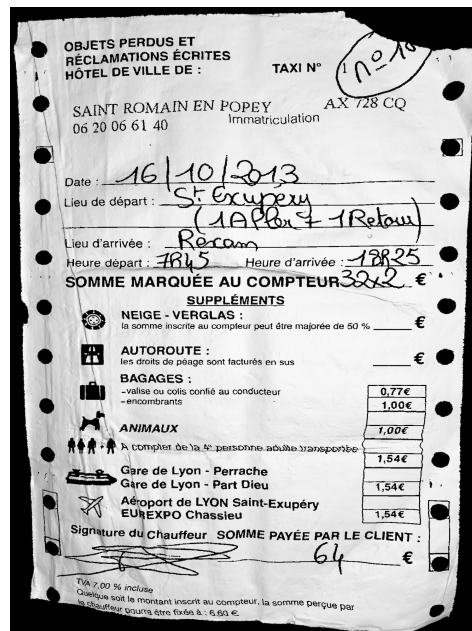 OBJETS PERDUS ET
RÉCLAMATIONS ÉCRITES
HÔTEL DE VILLE DE :
TAXI N° 1 n° 10
SAINT ROMAIN EN POPEY AX 728 CQ
06 20 06 61 40 Immatriculation
Date : 16/10/2013
Lieu de départ : St Exupéry
(1 Aller + 1 Retour)
Lieu d'arrivée :
Heure départ : 7h45 Heure d'arrivée : 18h25
SOMME MARQUÉE AU COMPTEUR 32x2 €
SUPPLÉMENTS
NEIGE - VERGLAS :
la somme inscrite au compteur peut être majorée de 50 % €
AUTOROUTE :
les droits de péage sont facturés en sus €
BAGAGES :
-valise ou colis confié au conducteur 0,77€
-encombrants 1,00€
ANIMAUX 1,00€
A compter de la 4e personne adulte transportée 1,54€
Gare de Lyon - Perrache
Gare de Lyon - Part Dieu 1,54€
Aéroport de LYON Saint-Exupéry
EUREXPO Chassieu 1,54€
Signature du Chauffeur SOMME PAYÉE PAR LE CLIENT :
64 €
TVA 7,00 % incluse
Quelque soit le montant inscrit au compteur, la somme perçue par
le chauffeur pourra être fixée à : 6,60 €